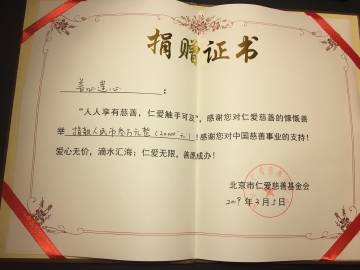 捐赠证书
善心莲心：
“人人享有慈善，仁爱触手可及”，感谢您对仁爱慈善的慷慨善
举，捐款人民币叁万元整（30000元）！感谢您对中国慈善事业的支持！
爱心无价，滴水汇海；仁爱无限，善愿成办！
北京市仁爱慈善基金会
2019年3月5日